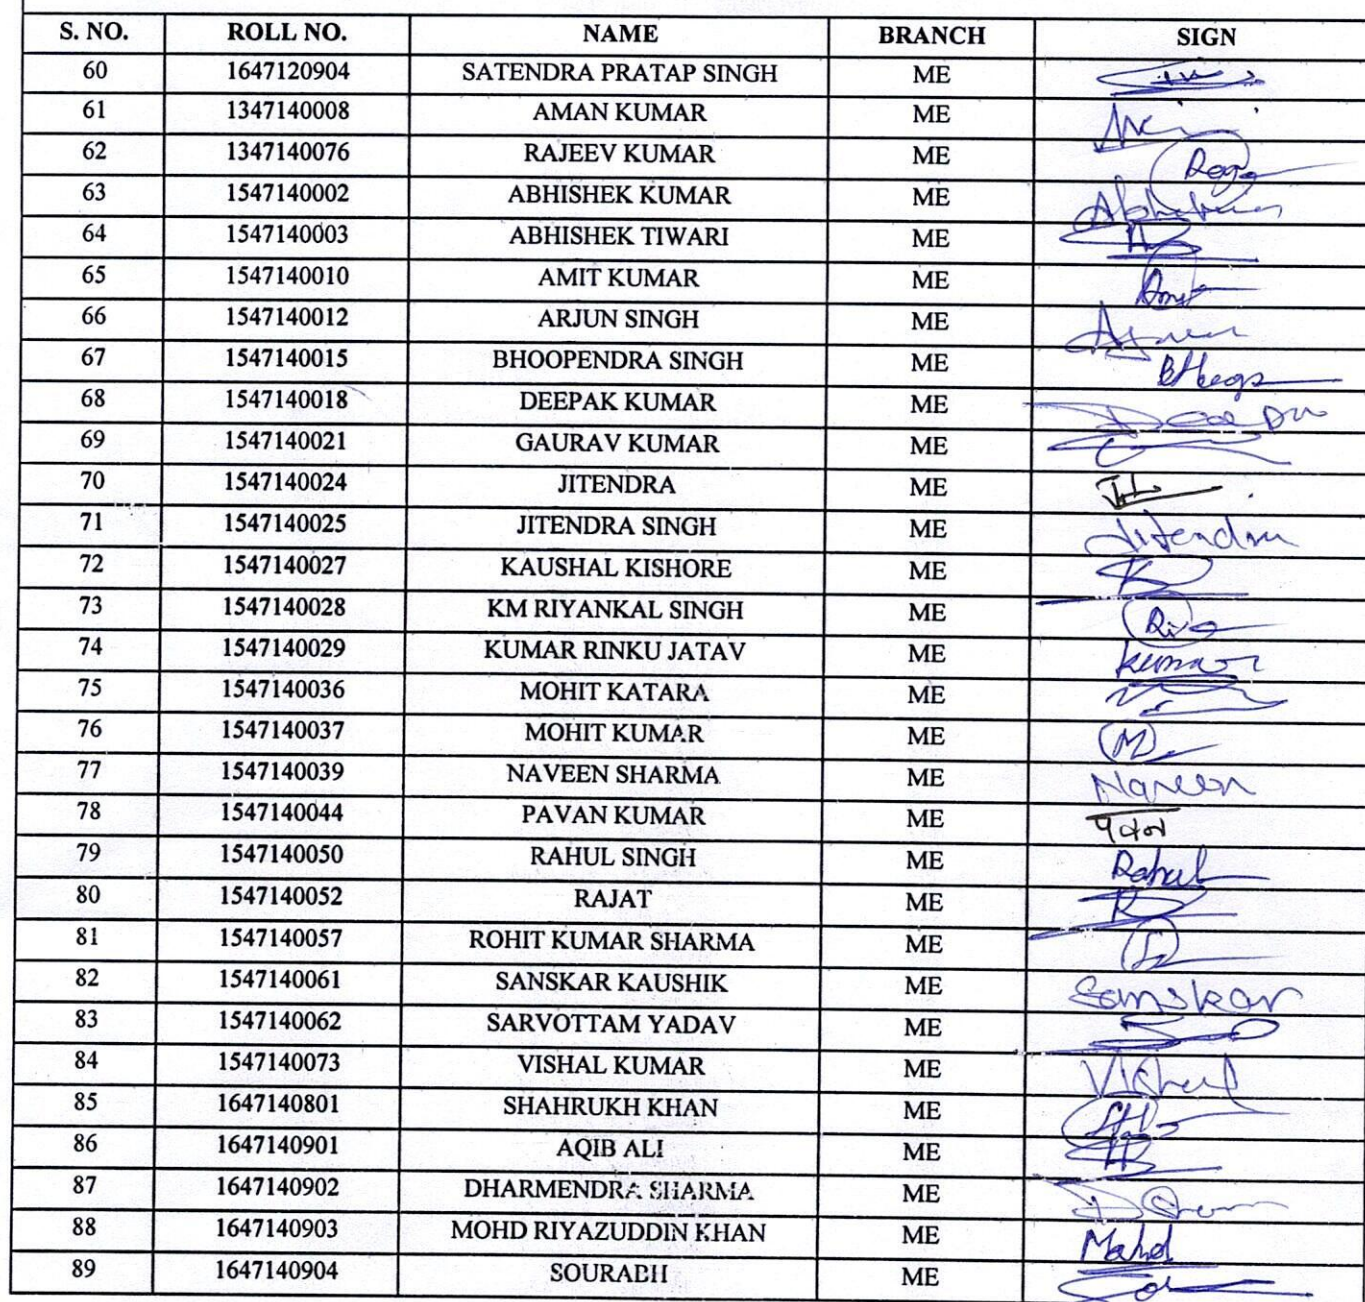 S. NO. ROLL NO. NAME BRANCH SIGN
60 1647120904 SATENDRA PRATAP SINGH ME
61 1347140008 AMAN KUMAR ME
62 1347140076 RAJEEV KUMAR ME
63 1547140002 ABHISHEK KUMAR ME
64 1547140003 ABHISHEK TIWARI ME
65 1547140010 AMIT KUMAR ME
66 1547140012 ARJUN SINGH ME
67 1547140015 BHOOPENDRA SINGH ME
68 1547140018 DEEPAK KUMAR ME
69 1547140021 GAURAV KUMAR ME
70 1547140024 JITENDRA ME
71 1547140025 JITENDRA SINGH ME Jitendra
72 1547140027 KAUSHAL KISHORE ME
73 1547140028 KM RIYANKAL SINGH ME
74 1547140029 KUMAR RINKU JATAV ME Kumar
75 1547140036 MOHIT KATARA ME
76 1547140037 MOHIT KUMAR ME
77 1547140039 NAVEEN SHARMA ME Naveen
78 1547140044 PAVAN KUMAR ME पवन
79 1547140050 RAHUL SINGH ME Rahul
80 1547140052 RAJAT ME
81 1547140057 ROHIT KUMAR SHARMA ME
82 1547140061 SANSKAR KAUSHIK ME Sanskar
83 1547140062 SARVOTTAM YADAV ME
84 1547140073 VISHAL KUMAR ME Vishal
85 1647140801 SHAHRUKH KHAN ME
86 1647140901 AQIB ALI ME
87 1647140902 DHARMENDRA SHARMA ME
88 1647140903 MOHD RIYAZUDDIN KHAN ME
89 1647140904 SOURABH ME